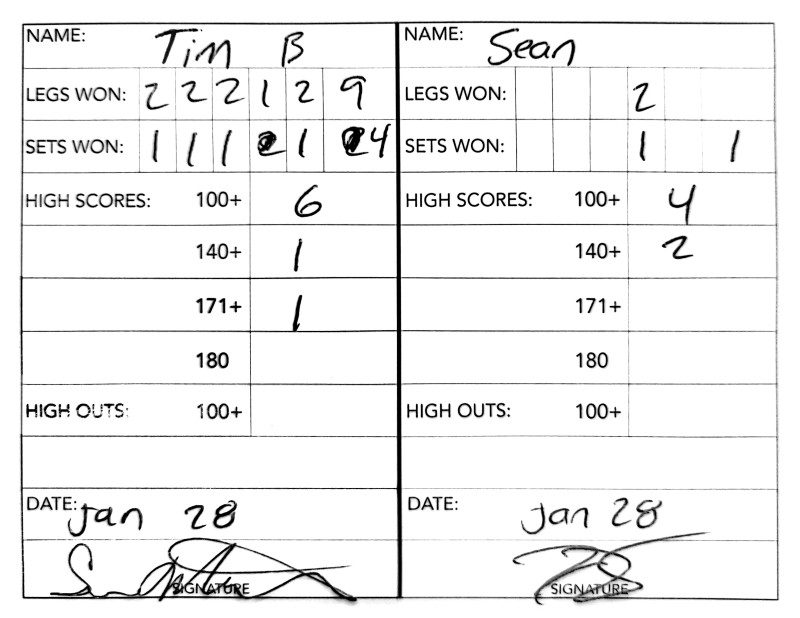 NAME: Tim B
LEGS WON: 2 2 2 1 2 9
SETS WON: 1 1 1 1 4
HIGH SCORES: 100+ 6
140+ 1
171+ 1
180
HIGH OUTS: 100+
DATE: Jan 28
SIGNATURE
NAME: Sean
LEGS WON: 2
SETS WON: 1 1
HIGH SCORES: 100+ 4
140+ 2
171+
180
HIGH OUTS: 100+
DATE: Jan 28
SIGNATURE